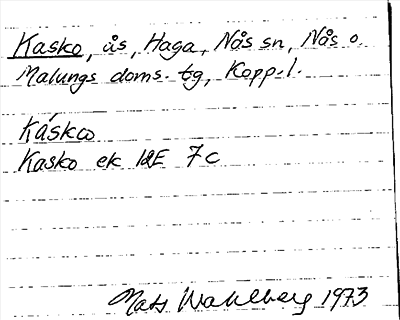 Kasko, ås, Haga, Nås sn, Nås o.
Malungs doms. tg, Kopp. l.
Káskω
Kasko ek 12E 7c
Mats Wahlberg 1973